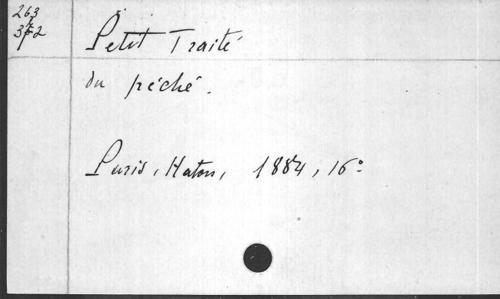 263
Petit Traité
du péché.
Paris, Haton, 1884, 16°